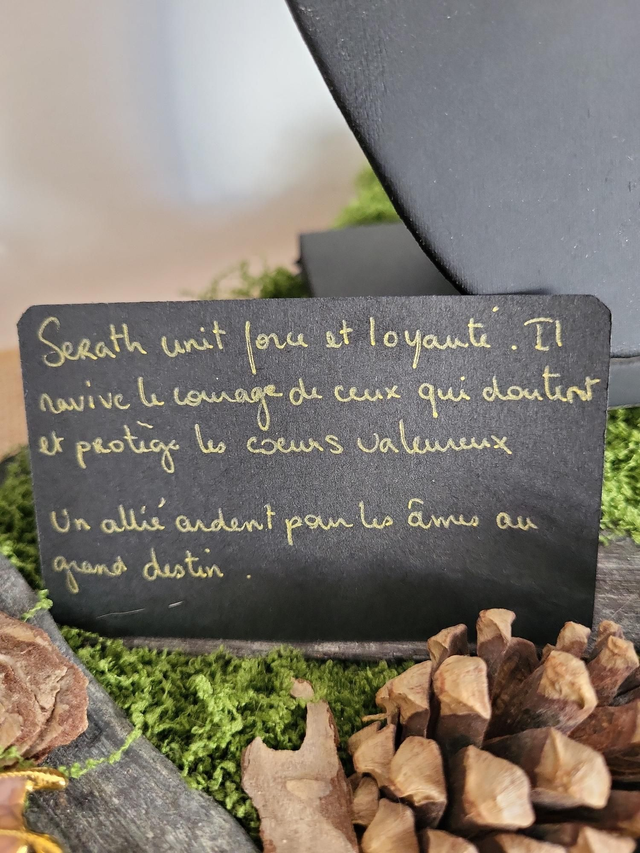 Serath unit force et loyauté. Il
ravive le courage de ceux qui doutent
et protège les coeurs valeureux
Un allié ardent pour les âmes au
grand destin.